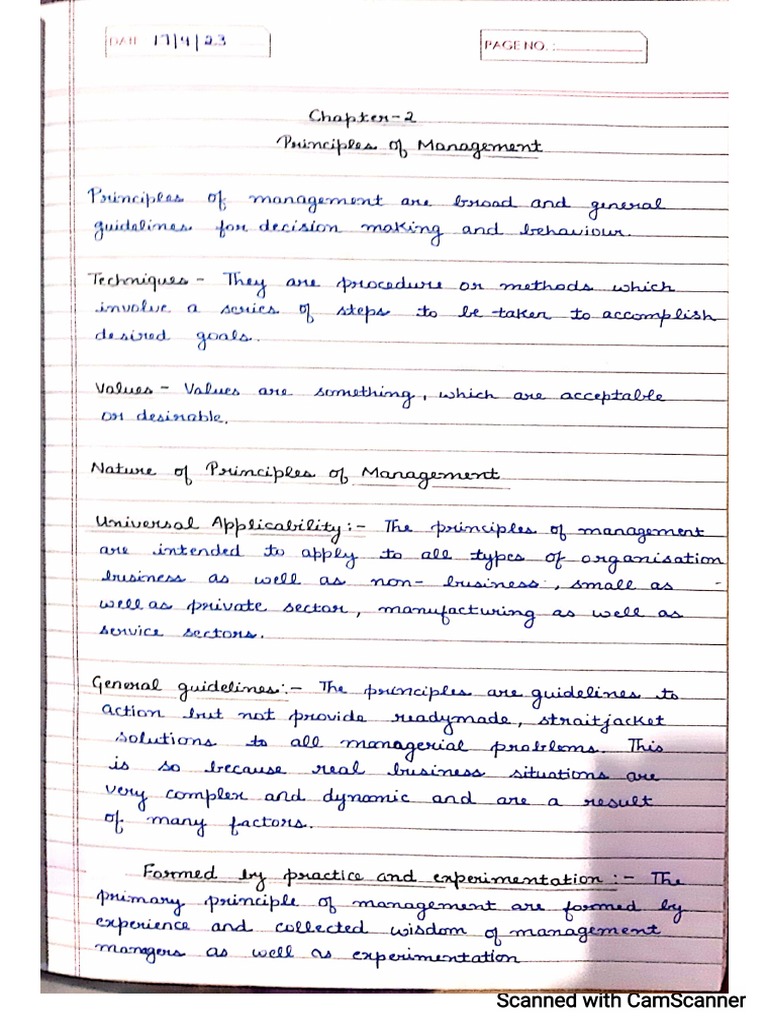 DATE 17/4/23
PAGE NO. :
Chapter-2
Principles of Management
Principles of management are broad and general
guidelines for decision making and behaviour.
Techniques - They are procedure or methods which
involve a series of steps to be taken to accomplish
desired goals.
Values - Values are something, which are acceptable
or desirable.
Nature of Principles of Management
Universal Applicability :- The principles of management
are intended to apply to all types of organisation
business as well as non- business, small as -
well as private sector, manufacturing as well as
service sectors.
General guidelines :- The principles are guidelines to
action but not provide readymade, straitjacket
solutions to all managerial problems. This
is so because real business situations are
very complex and dynamic and are a result
of many factors.
Formed by practice and experimentation :- The
primary principle of management are formed by
experience and collected wisdom of management
managers as well as experimentation
Scanned with CamScanner